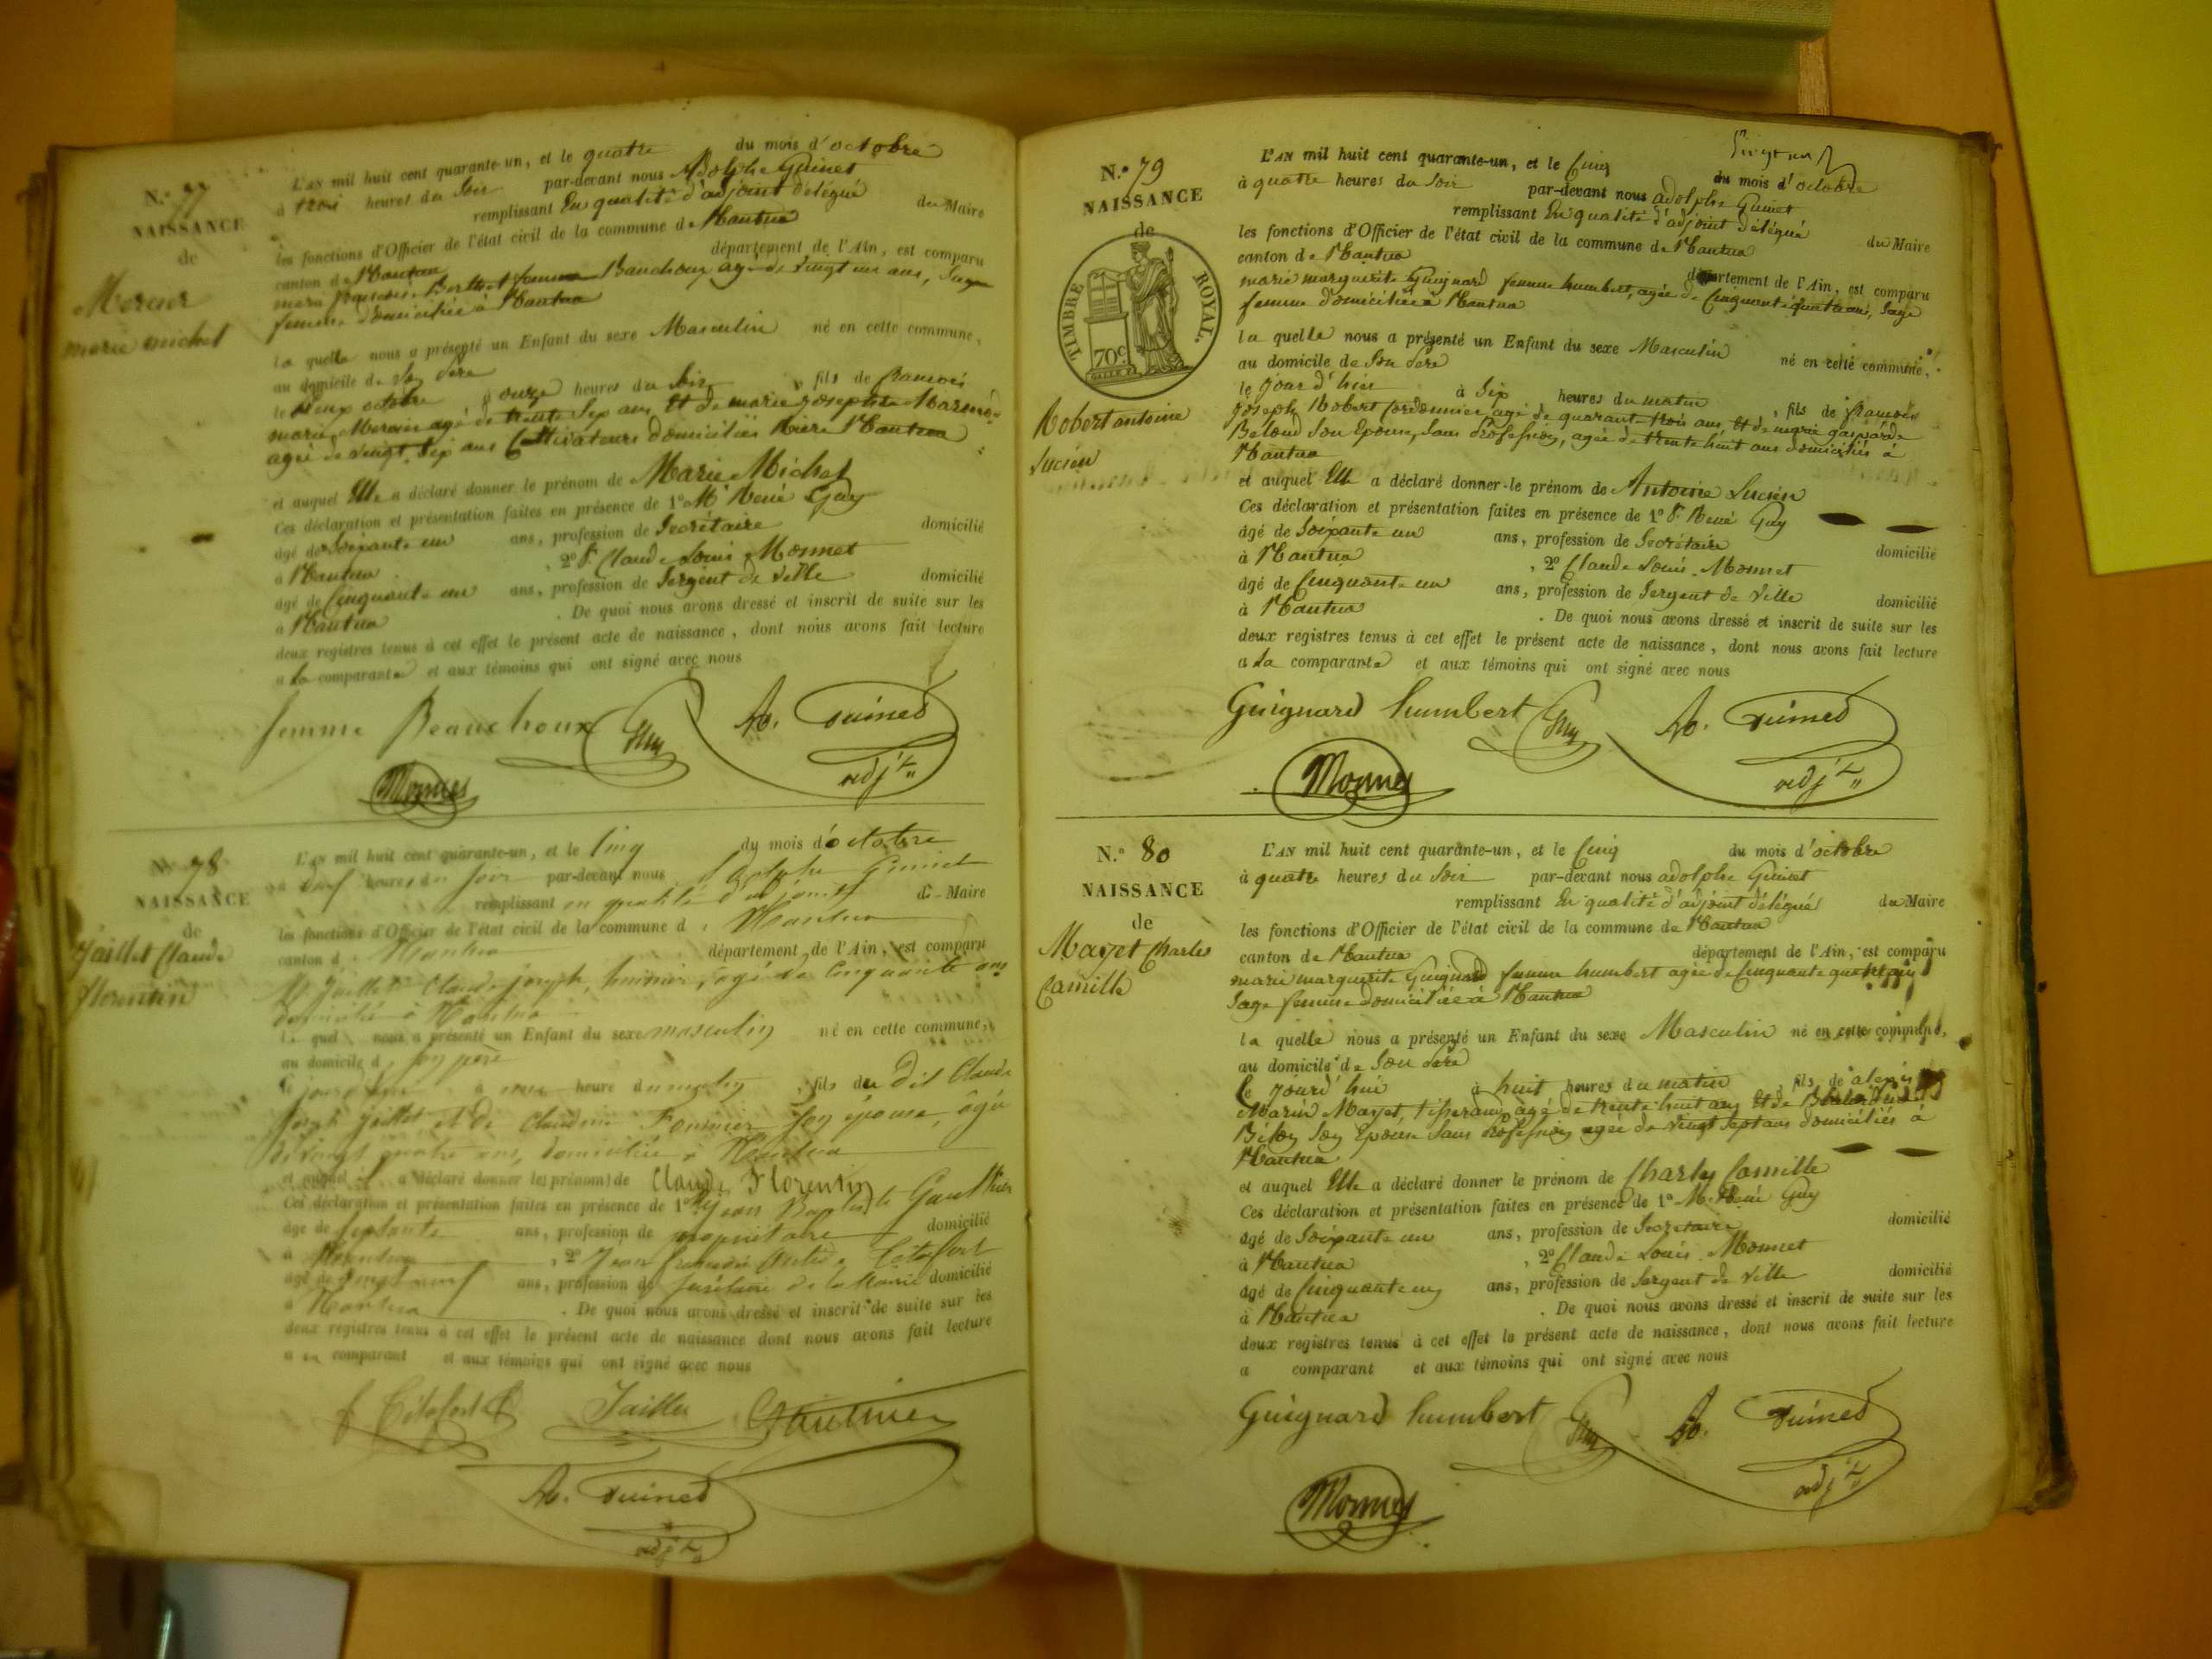 N.° 77
NAISSANCE
de
Mercier
marie michel
L'AN mil huit cent quarante-un, et le quatre du mois d'octobre
à trois heures du Soir par-devant nous Adolphe Guinet
remplissant En qualité d'adjoint délégué du Maire
les fonctions d'Officier de l'état civil de la commune de Nantua
canton de Nantua département de l'Ain, est comparu
marie françoise Berthet femme Bauchoux, agée de vingt un ans, Sage
femme domiciliée à Nantua
la quelle nous a présenté un Enfant du sexe Masculin né en cette commune,
au domicile de Son Père
le deux octobre à onze heures du Soir, fils de françois
marie Mercier agé de trente Six ans, Et de marie josephte
agée de vingt Six ans Cultivateurs domiciliés Rière Nantua
et auquel Elle a déclaré donner le prénom de Marie Michel
Ces déclaration et présentation faites en présence de 1° Mr René Guy
âgé de Soixante un ans, profession de Secrétaire domicilié
à Nantua, 2° Sr Claude Louis Monnet
âgé de Cinquante un ans, profession de Sergent de Ville domicilié
à Nantua. De quoi nous avons dressé et inscrit de suite sur les
deux registres tenus à cet effet le présent acte de naissance, dont nous avons fait lecture
a la comparante et aux témoins qui ont signé avec nous
femme Beauchoux Guy Ad. Guinet
Monnet adjt
N.° 78
NAISSANCE
de
Jaillet Claude
Florentin
L'AN mil huit cent quarante-un, et le Cinq du mois d'octobre
à heures du soir par-devant nous Adolphe Guinet
remplissant en qualité d'adjoint du Maire
les fonctions d'Officier de l'état civil de la commune d Nantua
canton d Nantua département de l'Ain, est comparu
Mr Jaillet Claude joseph, huissier, agé de Cinquante ans
domicilié à Nantua
le quel nous a présenté un Enfant du sexe masculin né en cette commune,
au domicile d son père
à heure du matin, fils du dit Claude
joseph Jaillet et de Claudine Fournier son épouse, âgée
de vingt quatre ans, domiciliée à Nantua
et auquel il a déclaré donner les prénoms de Claude Florentin
Ces déclaration et présentation faites en présence de 1° Mr jean Baptiste Gauthier
âgé de Septante ans, profession de propriétaire domicilié
à Nantua, 2° Jean françois
âgé de vingt neuf ans, profession de Secrétaire de la Mairie domicilié
à Nantua. De quoi nous avons dressé et inscrit de suite sur les
deux registres tenus à cet effet le présent acte de naissance dont nous avons fait lecture
a comparant et aux témoins qui ont signé avec nous
Jaillet Gauthier
Ad. Guinet
adjt
N.° 79
NAISSANCE
de
TIMBRE ROYAL.
70c
Robert antoine
Lucien
L'AN mil huit cent quarante-un, et le Cinq du mois d'octobre
à quatre heures du Soir par-devant nous adolphe Guinet
remplissant En qualité d'adjoint délégué du Maire
les fonctions d'Officier de l'état civil de la commune de Nantua
canton de Nantua département de l'Ain, est comparu
marie marguerite Guignard femme humbert, agée de Cinquante quatre ans, Sage
femme domiciliée à Nantua
la quelle nous a présenté un Enfant du sexe Masculin né en cette commune,
au domicile de Son Père
le jour d'hier à Six heures du matin, fils de françois
Joseph Robert Cordonnier agé de quarante trois ans, Et de marie gasparde
Beloud Son Epouse, Sans Profession, agée de trente huit ans domiciliés à
Nantua
et auquel Elle a déclaré donner le prénom de Antoine Lucien
Ces déclaration et présentation faites en présence de 1° Sr René Guy
âgé de Soixante un ans, profession de Secrétaire domicilié
à Nantua, 2° Claude Louis Monnet
âgé de Cinquante un ans, profession de Sergent de Ville domicilié
à Nantua. De quoi nous avons dressé et inscrit de suite sur les
deux registres tenus à cet effet le présent acte de naissance, dont nous avons fait lecture
a la comparante et aux témoins qui ont signé avec nous
Guignard humbert Guy Ad. Guinet
Monnet adjt
N.° 80
NAISSANCE
de
Mayet Charles
Camille
L'AN mil huit cent quarante-un, et le Cinq du mois d'octobre
à quatre heures du Soir par-devant nous adolphe Guinet
remplissant En qualité d'adjoint délégué du Maire
les fonctions d'Officier de l'état civil de la commune de Nantua
canton de Nantua département de l'Ain, est comparu
marie marguerite Guignard femme humbert agée de Cinquante quatre ans
Sage femme domiciliée à Nantua
la quelle nous a présenté un Enfant du sexe Masculin né en cette commune,
au domicile de Son Père
le jourd'hui à huit heures du matin, fils de alexis
Marin Mayet, tisserand, agé de trente huit ans Et de
Son Epouse Sans Profession agée de vingt Sept ans domiciliés à
Nantua
et auquel Elle a déclaré donner le prénom de Charles Camille
Ces déclaration et présentation faites en présence de 1° Mr René Guy
âgé de Soixante un ans, profession de Secretaire domicilié
à Nantua, 2° Claude Louis Monnet
âgé de Cinquante un ans, profession de Sergent de Ville domicilié
à Nantua. De quoi nous avons dressé et inscrit de suite sur les
deux registres tenus à cet effet le présent acte de naissance, dont nous avons fait lecture
a comparant et aux témoins qui ont signé avec nous
Guignard humbert Guy Ad. Guinet
Monnet adjt